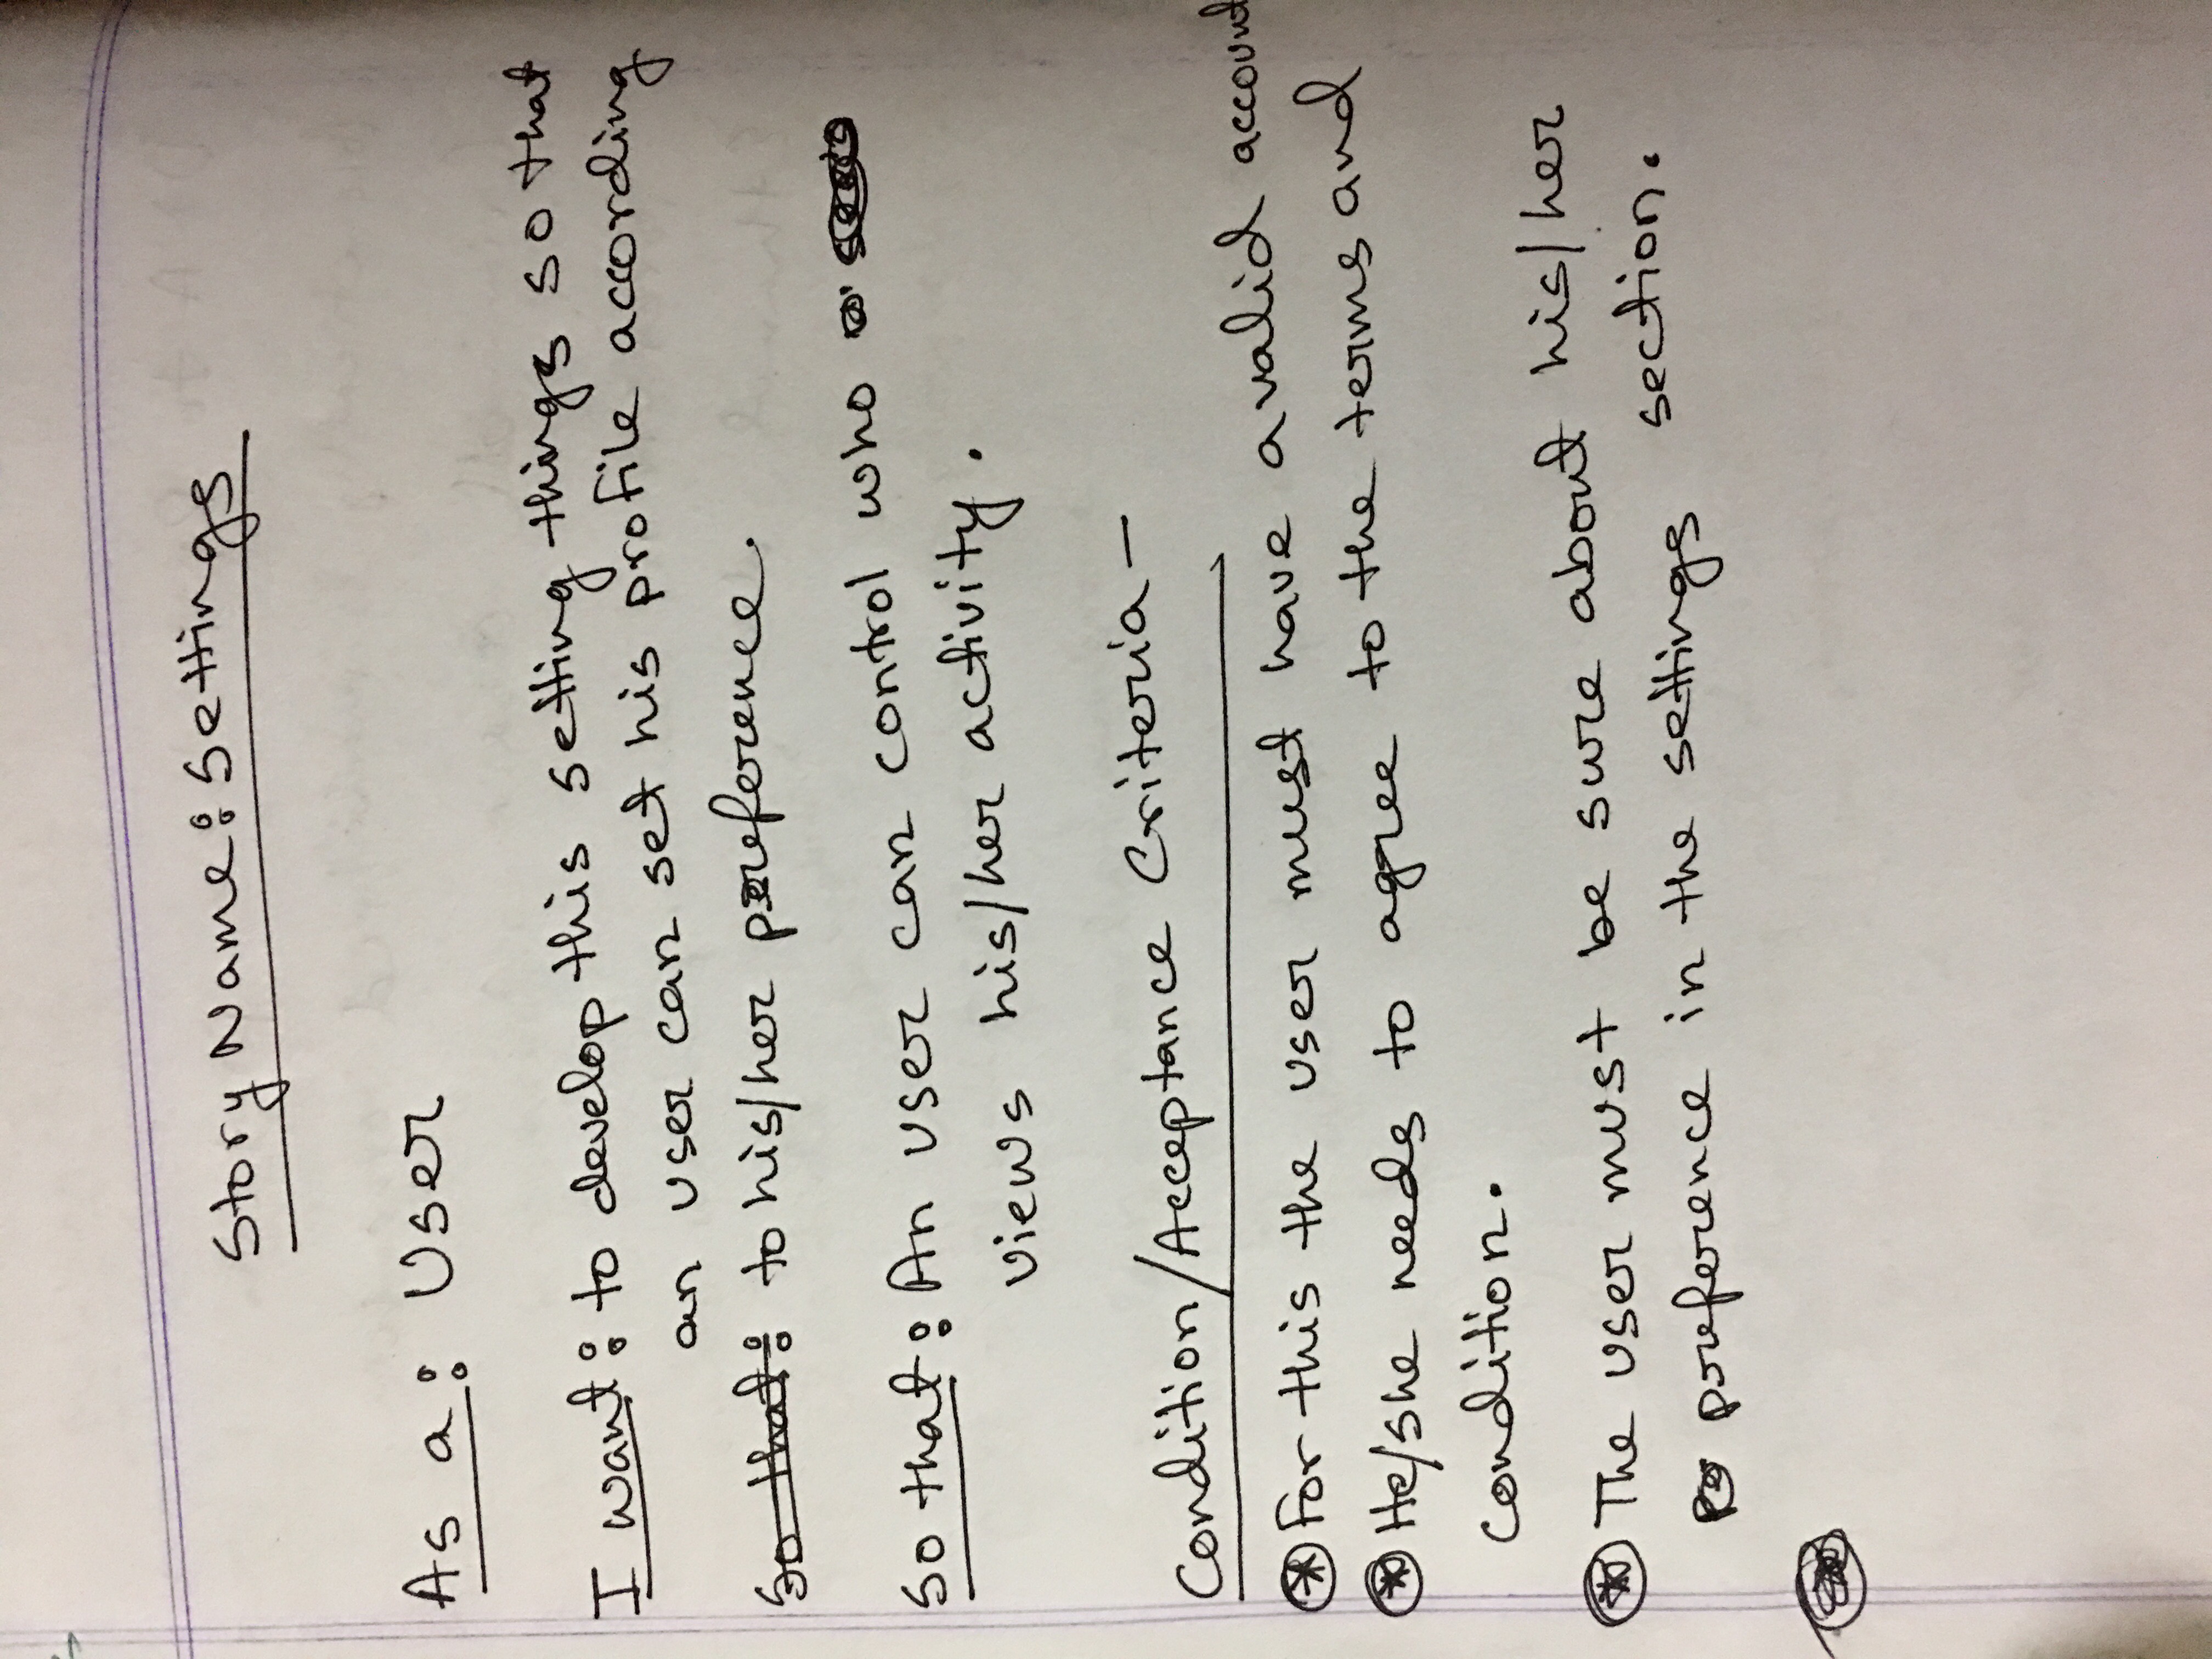 Story Name: Settings
As a: User
I want: to develop this setting things so that
an user can set his profile according
So that: to his/her preference.
So that: An user can control who
views his/her activity.
Condition/Acceptance Criteria -
* For this the user must have a valid account
* He/she needs to agree to the terms and
condition.
* The user must be sure about his/her
preference in the settings section.